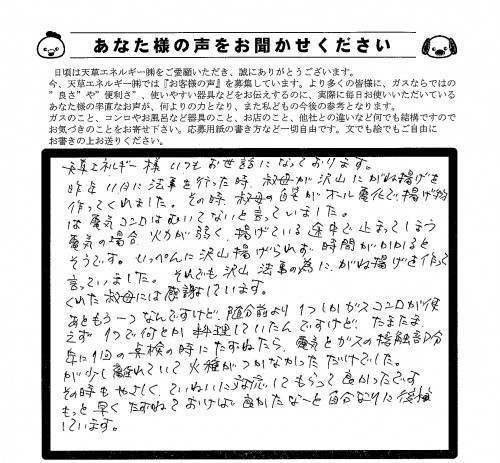 あなた様の声をお聞かせください
日頃は天草エネルギー㈱をご愛顧いただき、誠にありがとうございます。
今、天草エネルギー㈱では『お客様の声』を募集しています。より多くの皆様に、ガスならではの
”良さ”や”便利さ”、使いやすい器具などをお伝えするのに、実際に毎日お使いいただいている
あなた様の率直なお声が、何よりの力となり、また私どもの今後の参考となります。
ガスのこと、コンロやお風呂など器具のこと、お店のこと、他社との違いなど何でも結構ですので
お気づきのことをお寄せ下さい。応募用紙の書き方など一切自由です。文でも絵でもご自由に
お書きの上お送りください。
天草エネルギー様 いつもお世話になっております。
昨年11月に法事を行った時、叔母が沢山にがね揚げを
作ってくれました。その時、叔母の自宅がオール電化で揚げ物
は電気コンロはむいてないと言っていました。
電気の場合、火力が弱く、揚げている途中で止まってしまう
そうです。いっぺんに沢山揚げられず、時間がかかると
言っていました。それでも沢山、法事の為に、がね揚げを作って
くれた叔母には感謝しています。
あともう一つなんですけど、随分前より1つしかガスコンロが使
えず1つで何とか料理していたんですけど、たまたま、
年に1回の点検の時にたずねたら、電気とガスの接触部分
が少し離れていて火種がつかなかっただけでした。
その時もやさしく、ていねいに対応してもらって良かったです
もっと早くたずねておけば良かったなーと自分なりに後悔
しています。